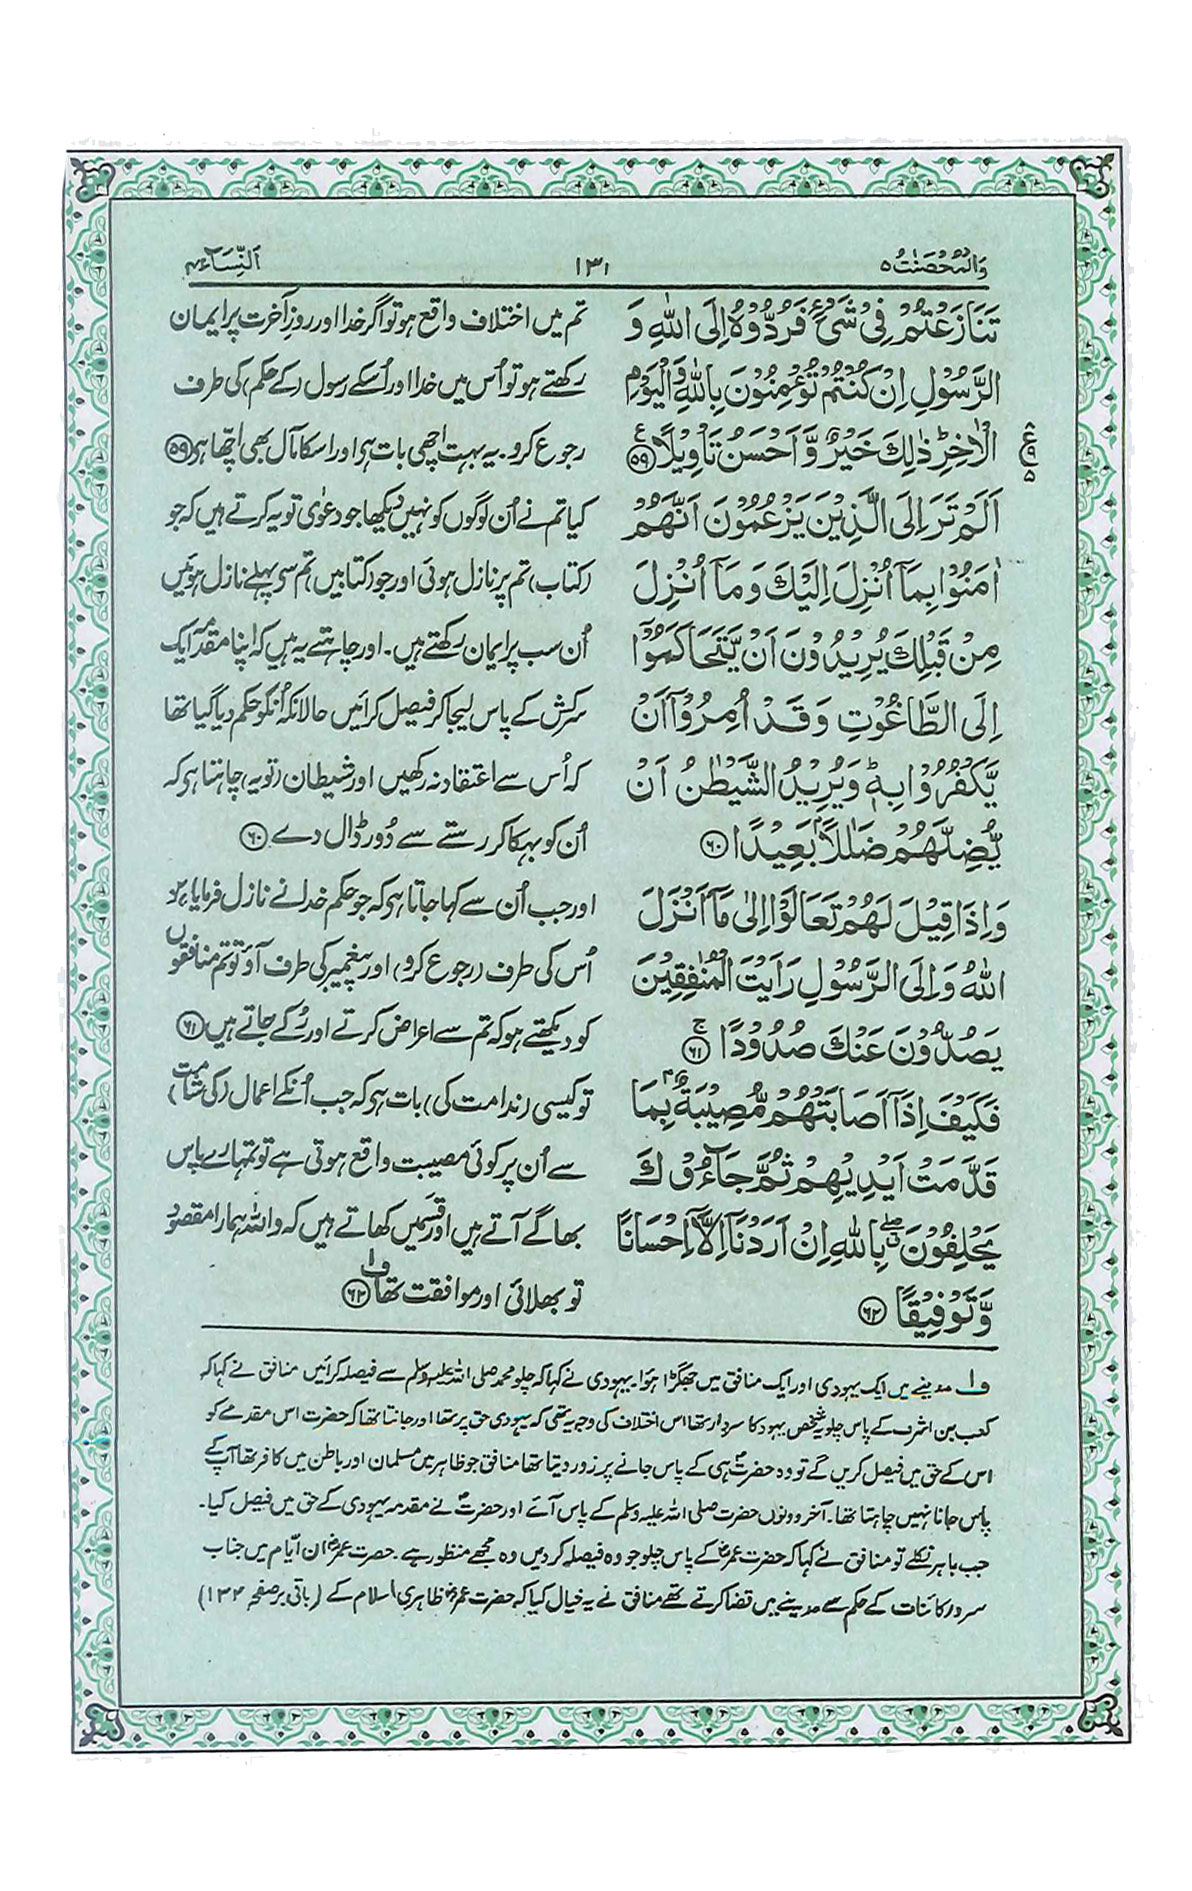 وَالْمُحْصَنٰتُ ۵
۱۳۱
اَلنِّسَآء ۴
تَنَازَعْتُمْ فِیْ شَیْءٍ فَرُدُّوْهُ اِلَی اللّٰهِ وَ
الرَّسُوْلِ اِنْ كُنْتُمْ تُؤْمِنُوْنَ بِاللّٰهِ وَالْیَوْمِ
الْاٰخِرِ ؕ ذٰلِكَ خَیْرٌ وَّاَحْسَنُ تَاْوِیْلًا ﴿۵۹﴾
اَلَمْ تَرَ اِلَی الَّذِیْنَ یَزْعُمُوْنَ اَنَّهُمْ
اٰمَنُوْا بِمَاۤ اُنْزِلَ اِلَیْكَ وَمَاۤ اُنْزِلَ
مِنْ قَبْلِكَ یُرِیْدُوْنَ اَنْ یَّتَحَاكَمُوْۤا
اِلَی الطَّاغُوْتِ وَقَدْ اُمِرُوْۤا اَنْ
یَّكْفُرُوْا بِهٖ ؕ وَیُرِیْدُ الشَّیْطٰنُ اَنْ
یُّضِلَّهُمْ ضَلٰلًۢا بَعِیْدًا ﴿۶۰﴾
وَاِذَا قِیْلَ لَهُمْ تَعَالَوْا اِلٰی مَاۤ اَنْزَلَ
اللّٰهُ وَاِلَی الرَّسُوْلِ رَاَیْتَ الْمُنٰفِقِیْنَ
یَصُدُّوْنَ عَنْكَ صُدُوْدًا ﴿۶۱﴾ ۚ
فَكَیْفَ اِذَاۤ اَصَابَتْهُمْ مُّصِیْبَةٌۢ بِمَا
قَدَّمَتْ اَیْدِیْهِمْ ثُمَّ جَآءُوْكَ
یَحْلِفُوْنَ ۖ بِاللّٰهِ اِنْ اَرَدْنَاۤ اِلَّاۤ اِحْسَانًا
وَّتَوْفِیْقًا ﴿۶۲﴾
تم میں اختلاف واقع ہو تو اگر خدا اور روزِ آخرت پر ایمان
رکھتے ہو تو اُس میں خدا اور اُسکے رسول (کے حکم) کی طرف
رجوع کرو۔ یہ بہت اچھی بات ہی اور اسکا مآل بھی اچھا ہی ﴿۵۹﴾
کیا تم نے اُن لوگوں کو نہیں دیکھا جو دعوٰی تو یہ کرتے ہیں کہ جو
(کتاب) تم پر نازل ہوئی اور جو (کتابیں) تم سی پہلے نازل ہوئیں
اُن سب پر ایمان رکھتے ہیں۔ اور چاہتے یہ ہیں کہ اپنا مقدمہ ایک
سرکش کے پاس لیجا کر فیصل کرائیں حالانکہ اُنکو حکم دیا گیا تھا
کہ اُس سے اعتقاد نہ رکھیں اور شیطان (تو یہ) چاہتا ہی کہ
اُن کو بہکا کر رستے سے دُور ڈال دے ﴿۶۰﴾
اور جب اُن سے کہا جاتا ہی کہ جو حکم خدا نے نازل فرمایا ہی
اُس کی طرف (رجوع کرو) اور پیغمبر کی طرف آؤ تو تم منافقوں
کو دیکھتے ہو کہ تم سے اعراض کرتے اور رُکے جاتے ہیں ﴿۶۱﴾
تو کیسی (ندامت کی) بات ہی کہ جب اُنکے اعمال (کی شامت)
سے اُن پر کوئی مصیبت واقع ہوتی ہے تو تمہارے پاس
بھاگے آتے ہیں اور قسمیں کھاتے ہیں کہ واللہ ہمارا مقصود
تو بھلائی اور موافقت تھا ف۱ ﴿۶۲﴾
ف۱ مدینے میں ایک یہودی اور ایک منافق میں جھگڑا ہوا۔ یہودی نے کہا کہ چلو محمد صلی اللہ علیہ وسلم سے فیصلہ کرائیں منافق نے کہا کہ
کعب بن اشرف کے پاس چلو یہ شخص یہود کا سردار تھا اس اختلاف کی وجہ یہ تھی کہ یہودی حق پر تھا اور جانتا تھا کہ حضرت اس مقدمے کو
اس کے حق میں فیصل کریں گے تو وہ حضرتؐ ہی کے پاس جانے پر زور دیتا تھا منافق جو ظاہر میں مسلمان اور باطن میں کافر تھا آپ کے
پاس جانا نہیں چاہتا تھا۔ آخر دونوں حضرت صلی اللہ علیہ وسلم کے پاس آئے اور حضرتؐ نے مقدمہ یہودی کے حق میں فیصل کیا۔
جب باہر نکلے تو منافق نے کہا کہ حضرت عمرؓ کے پاس چلو جو وہ فیصلہ کر دیں وہ مجھے منظور ہے۔ حضرت عمرؓ ان ایّام میں جناب
سرور کائنات کے حکم سے مدینے میں قضا کرتے تھے منافق نے یہ خیال کیا کہ حضرت عمرؓ ظاہری اسلام کے (باقی بر صفحہ ۱۳۲)